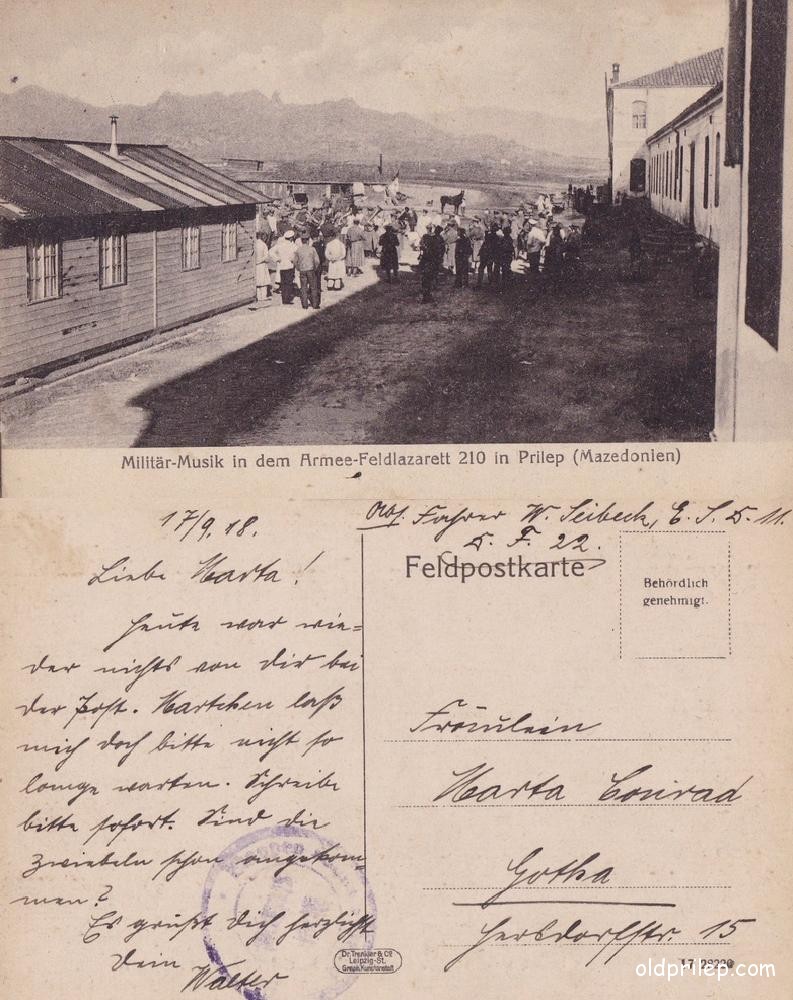 Militär-Musik in dem Armee-Feldlazarett 210 in Prilep (Mazedonien)
17/9. 18.
Liebe Marta!
Heute war wie=
der nichts von dir bei
der Post. Martchen laß
mich doch bitte nicht so
lange warten. Schreibe
bitte sofort. Sind die
Zwiebeln schon angekom-
men?
Es grüßt Dich herzlichst
Dein
Walter
Abs. Fahrer W. Seibeck, E. S. D. 11.
D. F. 22.
Feldpostkarte
Behördlich
genehmigt.
Fräulein
Marta Conrad
Gotha
15
Dr. Trenkler & Co
Leipzig-St.
Graph. Kunstanstalt
17
oldprilep.com